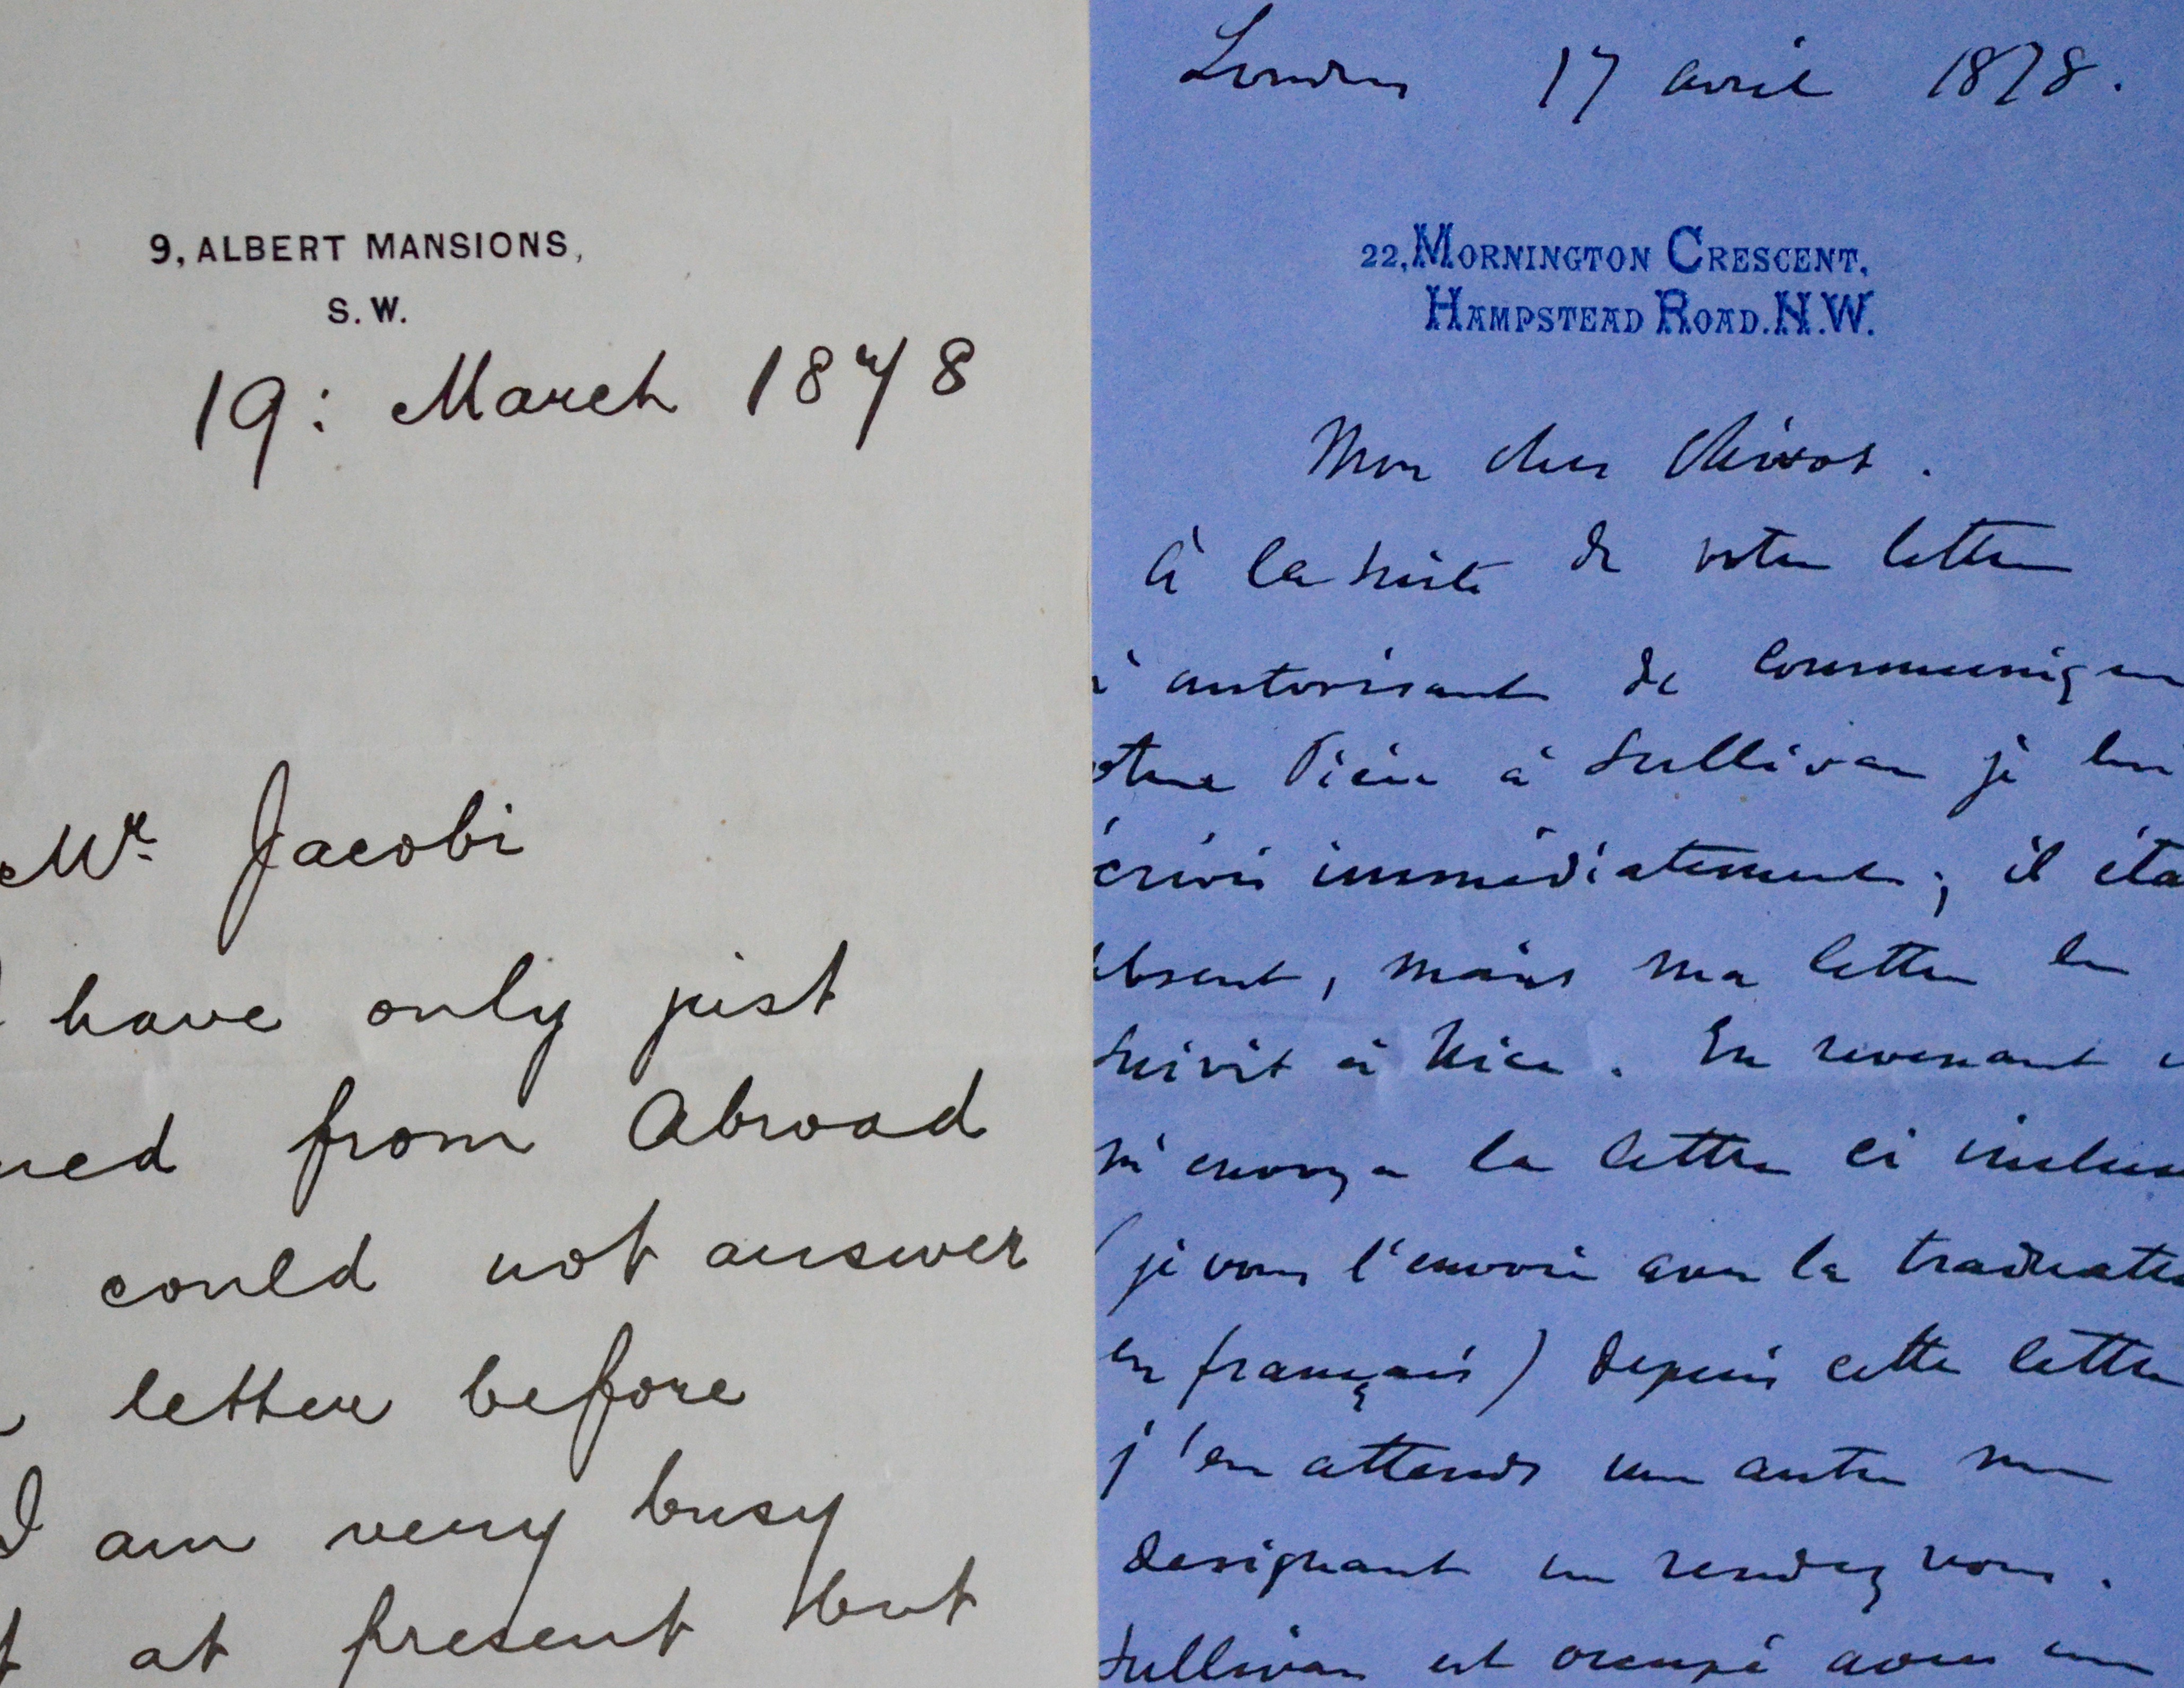 9, ALBERT MANSIONS,
S. W.
19: March 1878
Mr. Jacobi
have only just
ned from Abroad
could not answer
letter before
I am very busy
at present but
Londres 17 avril 1878.
22, MORNINGTON CRESCENT,
HAMPSTEAD ROAD. N.W.
Mon cher Chivot.
à la suite de votre lettre
m'autorisant de communiquer
otre Pièce à Sullivan je lui
écrivis immédiatement; il éta
absent, mais ma lettre le
suivit à Nice. En revenant i
m'envoya la lettre ci incluse
(je vous l'envoie avec la traducti
en français) depuis cette lettre
j'en attends une autre me
designant un rendez vous.
Sullivan est occupé avec un